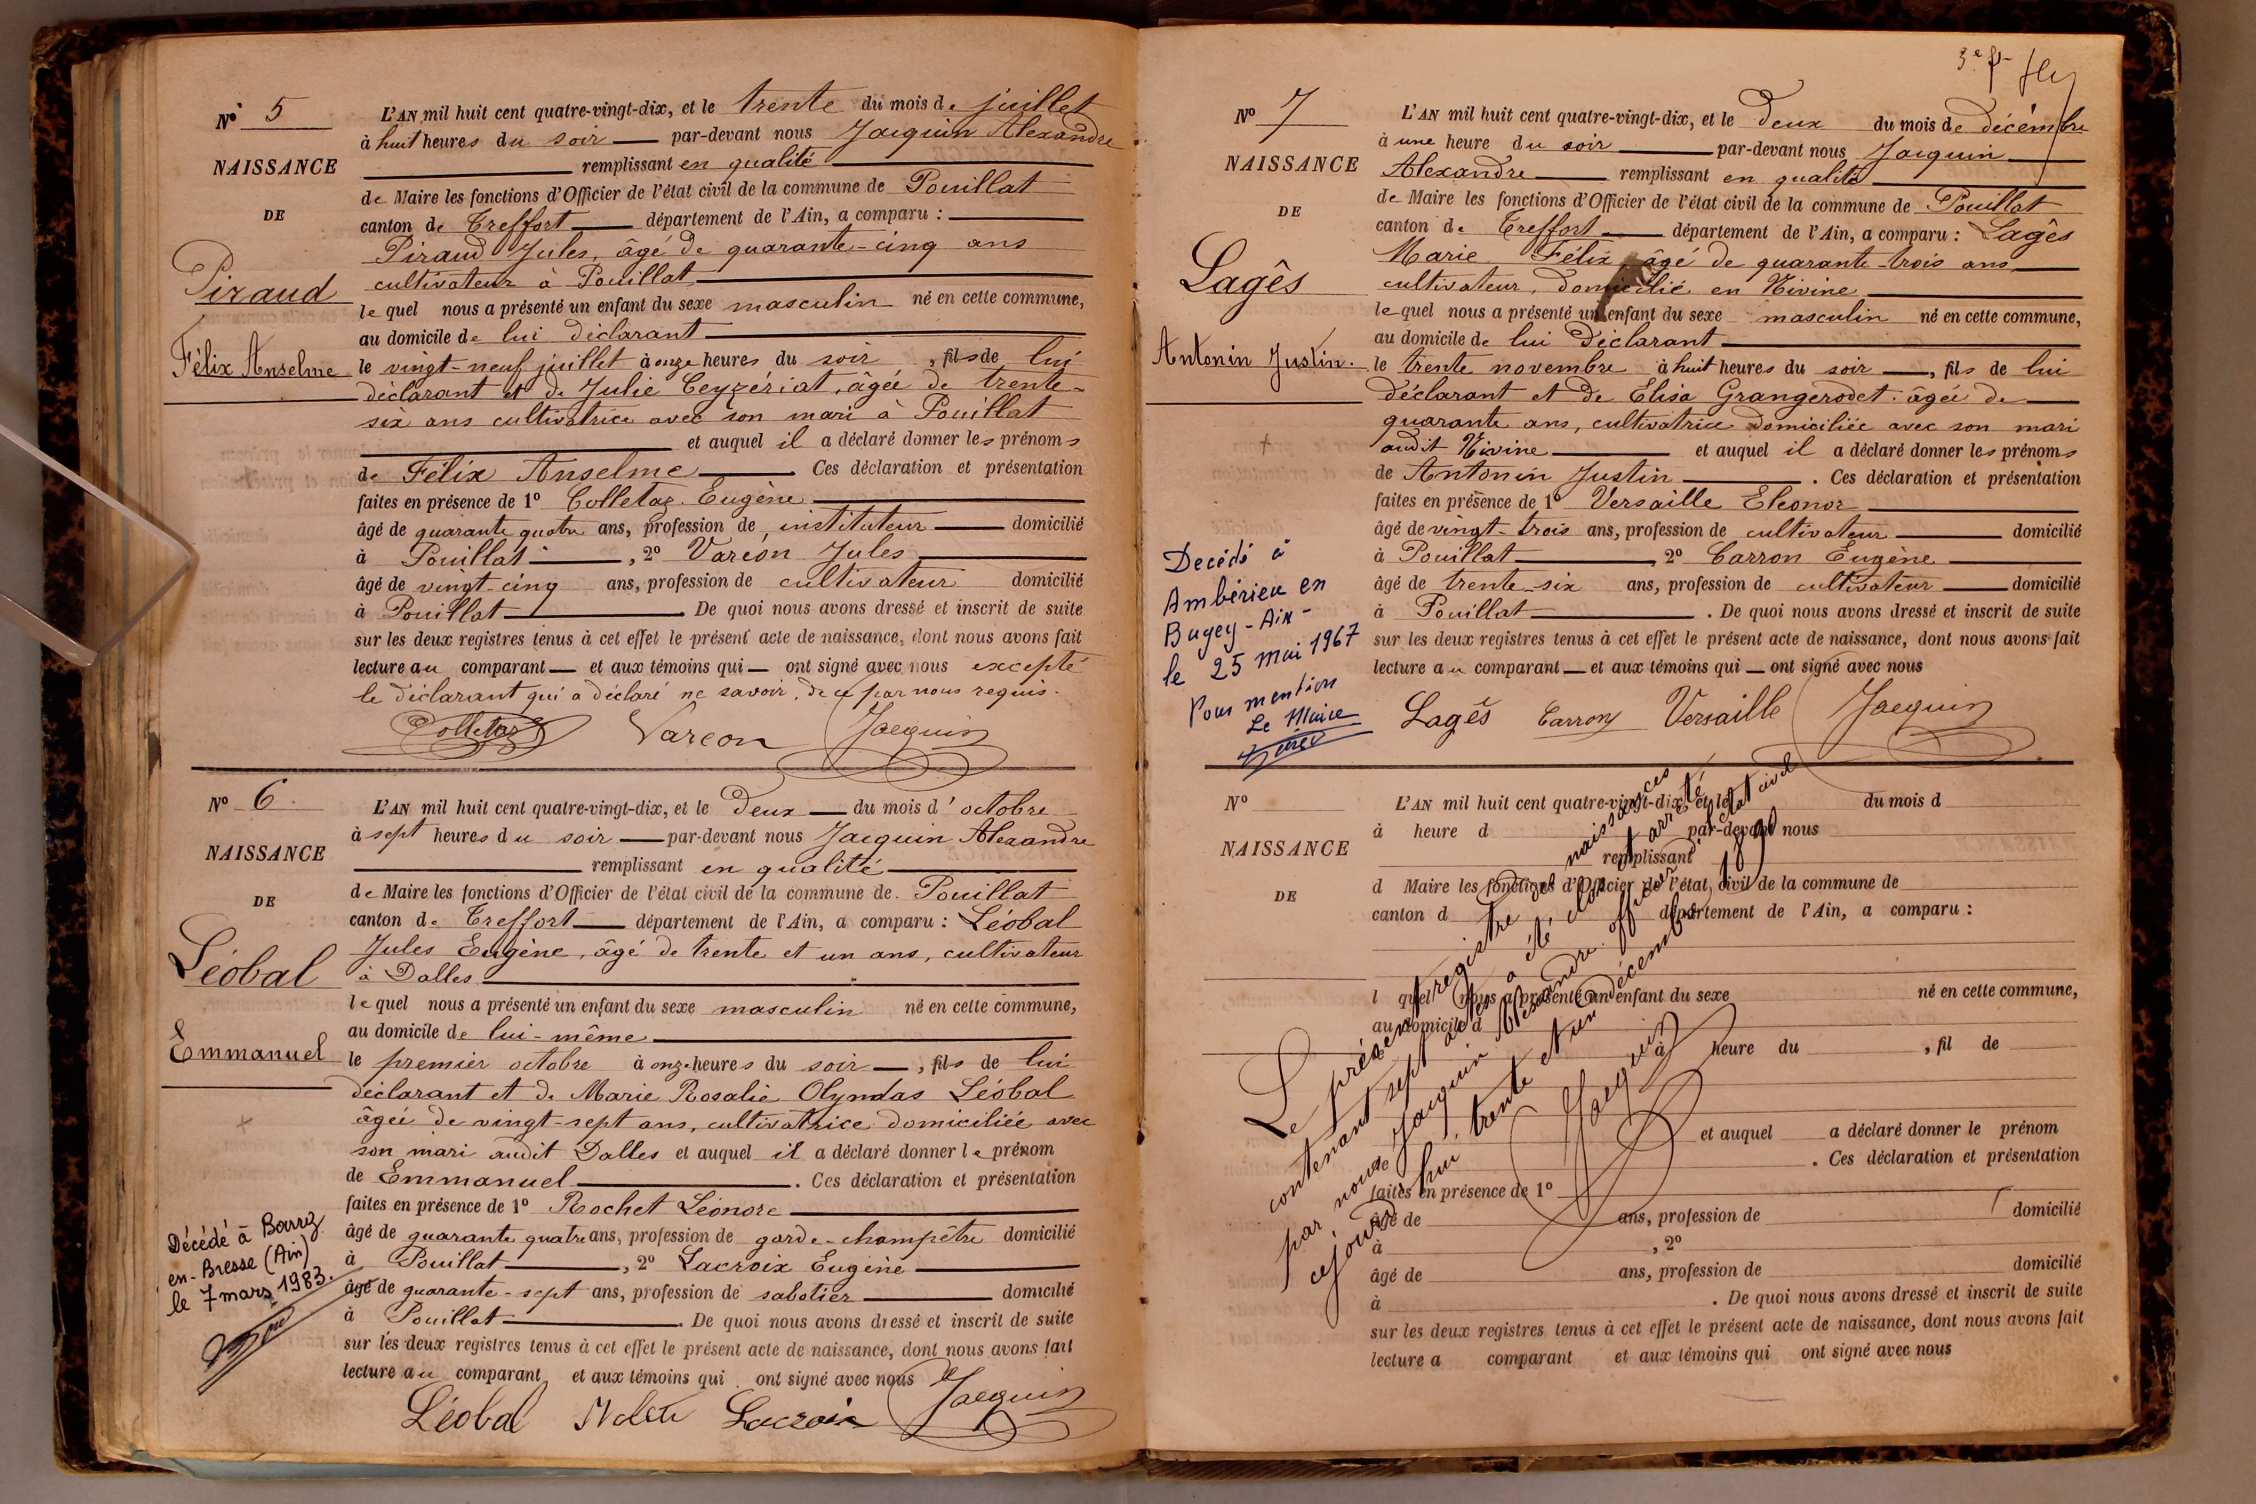 N° 5
NAISSANCE
DE
Piraud
Félix Anselme
L'AN mil huit cent quatre-vingt-dix, et le trente du mois de juillet
à huit heures du soir par-devant nous Jacquin Alexandre
remplissant en qualité
de Maire les fonctions d'Officier de l'état civil de la commune de Pouillat
canton de Treffort département de l'Ain, a comparu :
Piraud Jules, âgé de quarante-cinq ans
cultivateur à Pouillat
lequel nous a présenté un enfant du sexe masculin né en cette commune,
au domicile de lui déclarant
le vingt-neuf juillet à onze heures du soir, fils de lui
déclarant et de Julie Ceyzériat, âgée de trente-
six ans cultivatrice avec son mari à Pouillat
et auquel il a déclaré donner les prénoms
de Félix Anselme. Ces déclaration et présentation
faites en présence de 1° Colletaz Eugène
âgé de quarante quatre ans, profession de instituteur domicilié
à Pouillat, 2° Varéon Jules
âgé de vingt-cinq ans, profession de cultivateur domicilié
à Pouillat. De quoi nous avons dressé et inscrit de suite
sur les deux registres tenus à cet effet le présent acte de naissance, dont nous avons fait
lecture au comparant et aux témoins qui ont signé avec nous excepté
le déclarant qui a déclaré ne savoir, de ce par nous requis.
Colletaz Vareon Jacquin
N° 6
NAISSANCE
DE
Léobal
Emmanuel
Décédé à Bourg
en-Bresse (Ain)
le 7 mars 1983.
L'AN mil huit cent quatre-vingt-dix, et le deux du mois d'octobre
à sept heures du soir par-devant nous Jacquin Alexandre
remplissant en qualité
de Maire les fonctions d'Officier de l'état civil de la commune de Pouillat
canton de Treffort département de l'Ain, a comparu : Léobal
Jules Eugène, âgé de trente et un ans, cultivateur
à Dalles
lequel nous a présenté un enfant du sexe masculin né en cette commune,
au domicile de lui-même
le premier octobre à onze heures du soir, fils de lui
déclarant et de Marie Rosalie Olyndas Léobal
âgée de vingt-sept ans, cultivatrice domiciliée avec
son mari audit Dalles et auquel il a déclaré donner le prénom
de Emmanuel. Ces déclaration et présentation
faites en présence de 1° Rochet Léonore
âgé de quarante quatre ans, profession de garde-champêtre domicilié
à Pouillat, 2° Lacroix Eugène
âgé de quarante-sept ans, profession de sabotier domicilié
à Pouillat. De quoi nous avons dressé et inscrit de suite
sur les deux registres tenus à cet effet le présent acte de naissance, dont nous avons fait
lecture au comparant et aux témoins qui ont signé avec nous
Léobal Lacroix Jacquin
N° 7
NAISSANCE
DE
Lagês
Antonin Justin.
Décédé à
Ambérieu en
Bugey-Ain-
le 25 mai 1967
Pour mention
Le Maire
L'AN mil huit cent quatre-vingt-dix, et le deux du mois de décembre
à une heure du soir par-devant nous Jacquin
Alexandre remplissant en qualité
de Maire les fonctions d'Officier de l'état civil de la commune de Pouillat
canton de Treffort département de l'Ain, a comparu : Lagês
Marie Félix âgé de quarante-trois ans
cultivateur, domicilié en Nivine
lequel nous a présenté un enfant du sexe masculin né en cette commune,
au domicile de lui déclarant
le trente novembre à huit heures du soir, fils de lui
déclarant et de Elisa Grangerodet âgée de
quarante ans, cultivatrice domiciliée avec son mari
audit Nivine et auquel il a déclaré donner les prénoms
de Antonin Justin. Ces déclaration et présentation
faites en présence de 1° Versaille Eléonor
âgé de vingt-trois ans, profession de cultivateur domicilié
à Pouillat, 2° Carron Eugène
âgé de trente-six ans, profession de cultivateur domicilié
à Pouillat. De quoi nous avons dressé et inscrit de suite
sur les deux registres tenus à cet effet le présent acte de naissance, dont nous avons fait
lecture au comparant et aux témoins qui ont signé avec nous
Lagês Carron Versaille Jacquin
N°
NAISSANCE
DE
L'AN mil huit cent quatre-vingt-dix, et le du mois d
à heure d par-devant nous
remplissant
d Maire les fonctions d'Officier de l'état civil de la commune de
canton d département de l'Ain, a comparu :
l quel nous a présenté un enfant du sexe né en cette commune,
au domicile d
à heure du , fil de
et auquel a déclaré donner le prénom
. Ces déclaration et présentation
faites en présence de 1°
âgé de ans, profession de domicilié
à , 2°
âgé de ans, profession de domicilié
à . De quoi nous avons dressé et inscrit de suite
sur les deux registres tenus à cet effet le présent acte de naissance, dont nous avons fait
lecture a comparant et aux témoins qui ont signé avec nous
Le présent registre des naissances
contenant sept actes a été clos et arrêté
par nous Jacquin Alexandre officier d'état civil
cejourd'hui trente et un décembre 1890
Jacquin